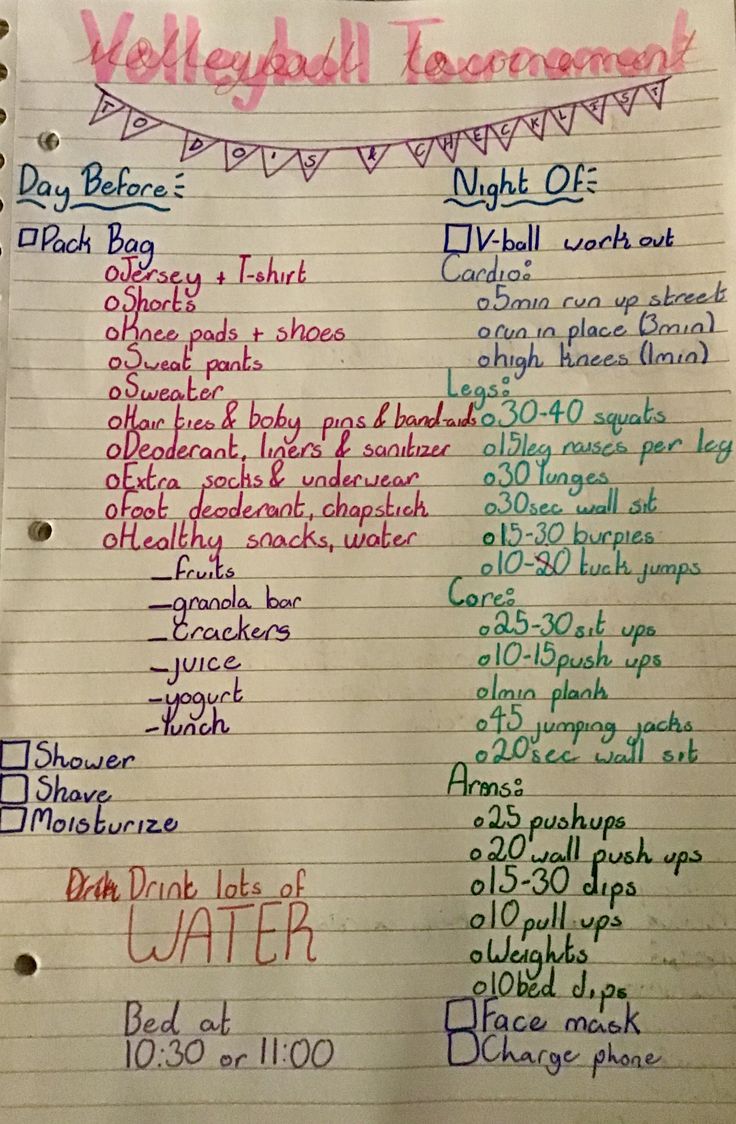 Volleyball Tournament
TO DO'S & CHECKLIST
Day Before:
Pack Bag
Jersey + T-shirt
Shorts
Knee pads + shoes
Sweat pants
Sweater
Hair ties & boby pins & band-aids
Deoderant, liners & sanitizer
Extra socks & underwear
Foot deoderant, chapstick
Healthy snacks, water
- fruits
- granola bar
- crackers
- juice
- yogurt
- lunch
Shower
Shave
Moisturize
Drink lots of
WATER
Bed at
10:30 or 11:00
Night Of:
V-ball work out
Cardio:
5min run up street
run in place (3min)
high knees (1min)
Legs:
30-40 squats
15leg raises per leg
30 lunges
30sec wall sit
15-30 burpies
10-20 tuck jumps
Core:
25-30 sit ups
10-15 push ups
1min plank
45 jumping jacks
20sec wall sit
Arms:
25 pushups
20 wall push ups
15-30 dips
10 pull ups
Weights
10 bed dips
Face mask
Charge phone